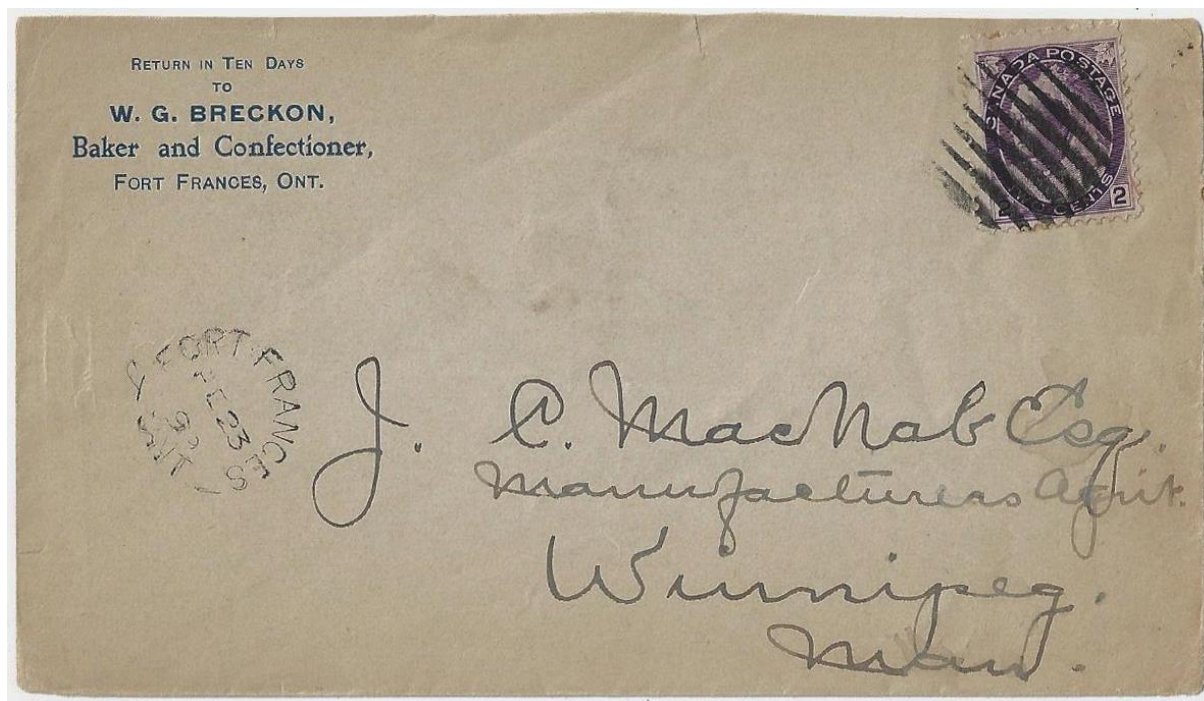 RETURN IN TEN DAYS
TO
W. G. BRECKON,
Baker and Confectioner,
FORT FRANCES, ONT.
CANADA POSTAGE
2 CENTS 2
FORT FRANCES
FE 23
ONT
J. C. MacNab Esq.
Manufacturers Agent.
Winnipeg.
Man.